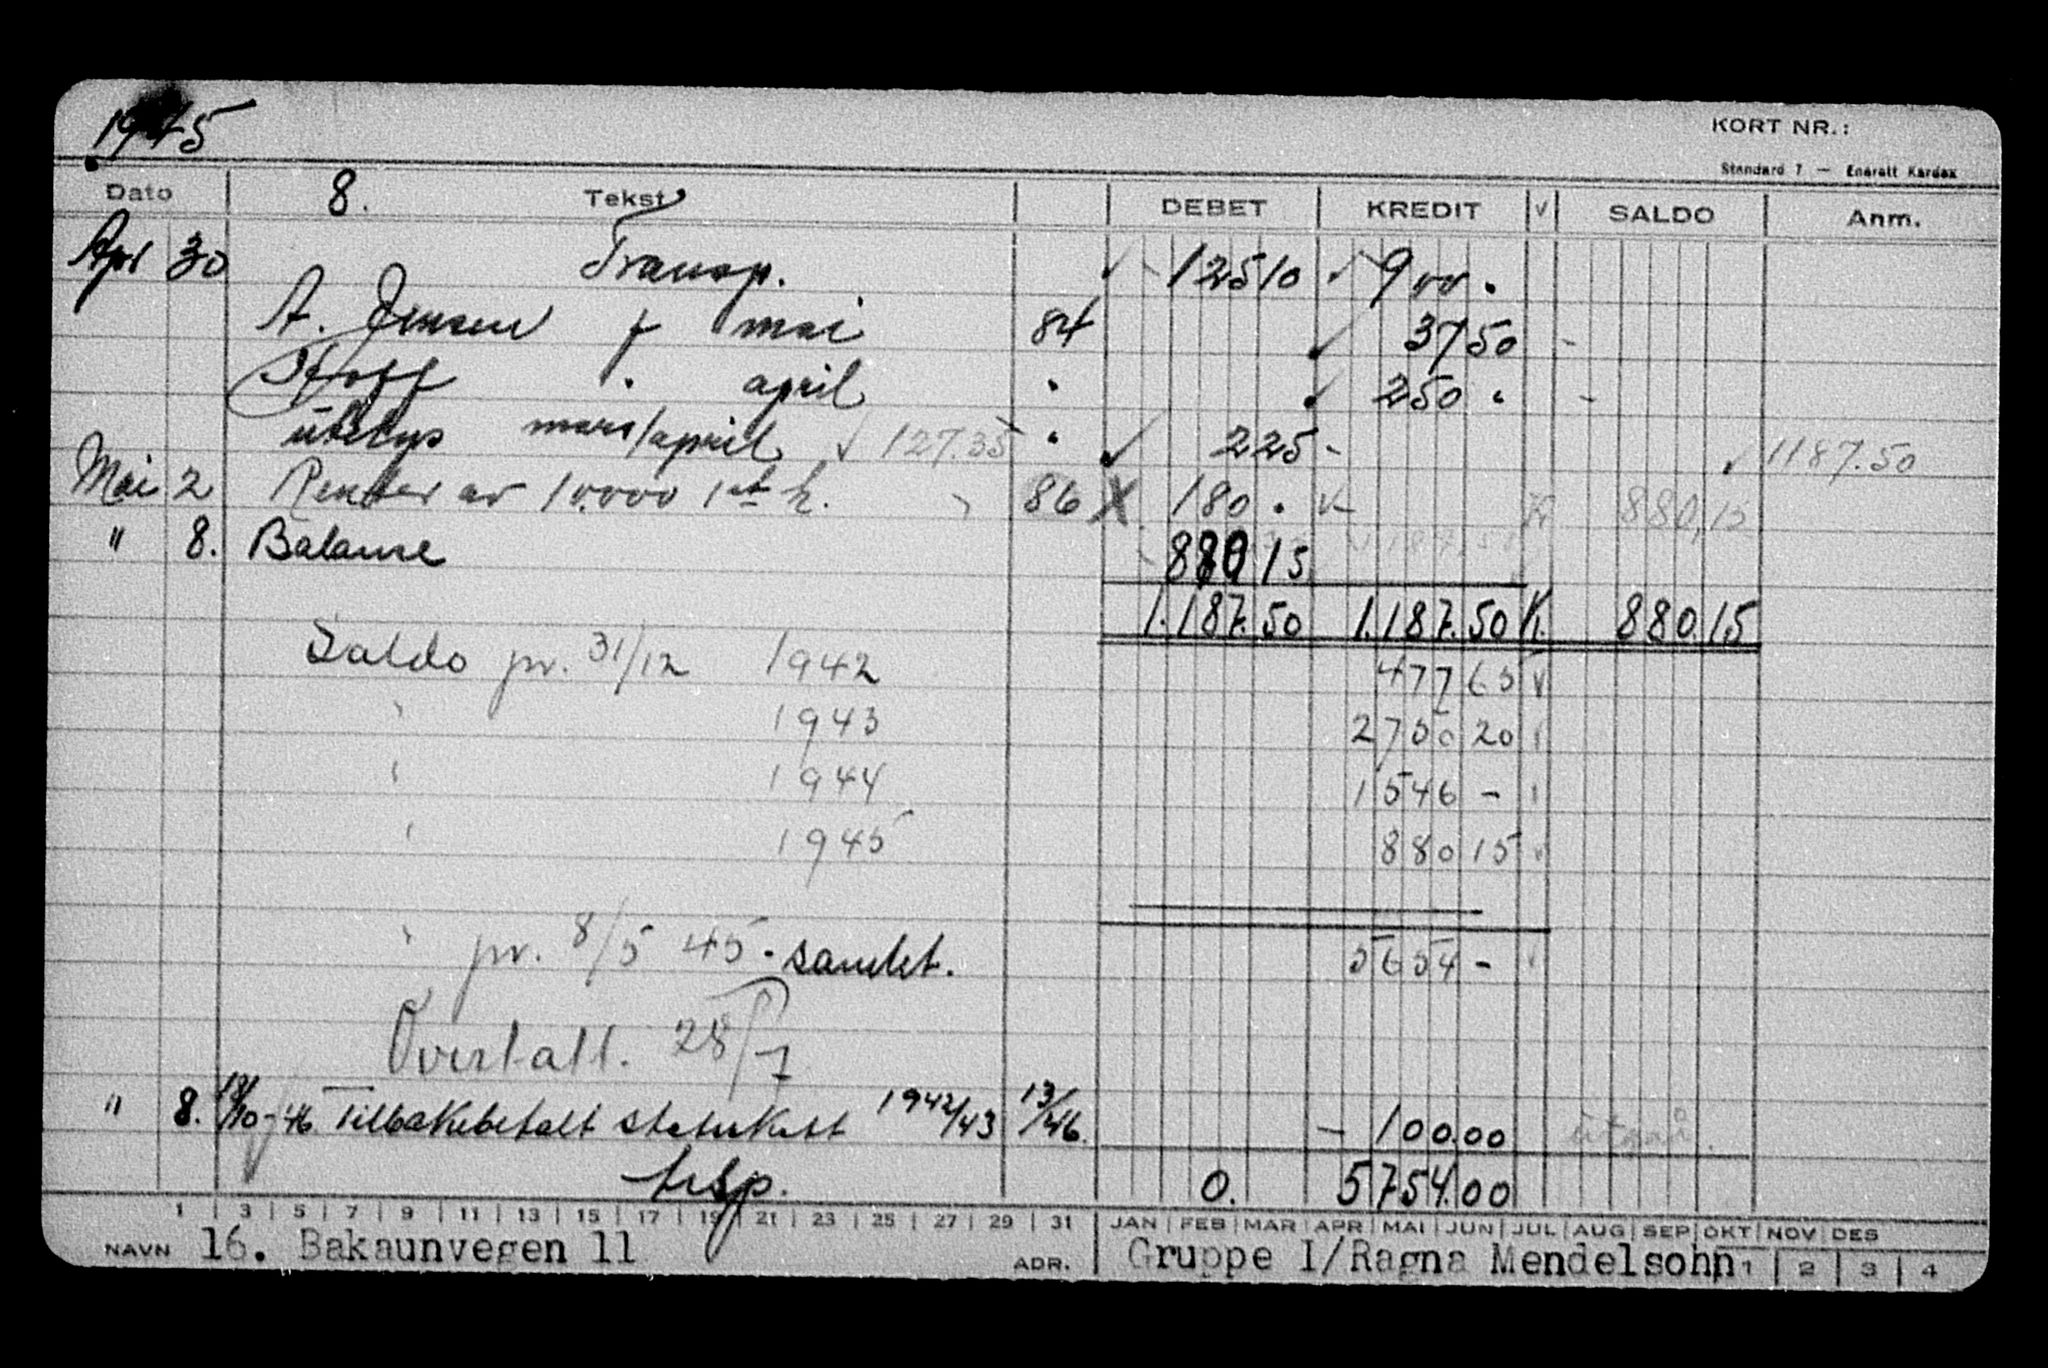 1945
KORT NR.:
Standard 7 — Enerett Kardex
Dato 8. Tekst DEBET KREDIT V SALDO Anm.
Apr 30 Transp. 125 10 900 .
A. Jensen f mai 84 37 50 -
Hoff " april " 250 . -
utlegg mars/april 127.35 " 225 - 1187.50
Mai 2 Renter av 10.000 1st h. 86 X 180 . K 880,15
" 8. Balanse 880 15 1.187.50
1.187.50 1.187.50 K. 880 15
Saldo pr. 31/12 1942 477 65
" 1943 2750 20
" 1944 1546 -
" 1945 880 15
" pr. 8/5 45 . samlet. 5654 -
Overtatt. 28/7
" 8. 18/10-46 Tilbakebetalt 1942/43 13/46. - 100.00 utgår.
trsp. 0. 5754.00
1 3 5 7 9 11 13 15 17 19 21 23 25 27 29 31 JAN FEB MAR APR MAI JUN JUL AUG SEP OKT NOV DES
NAVN 16. Bakaunvegen 11 ADR. Gruppe I/Ragna Mendelsohn 1 2 3 4